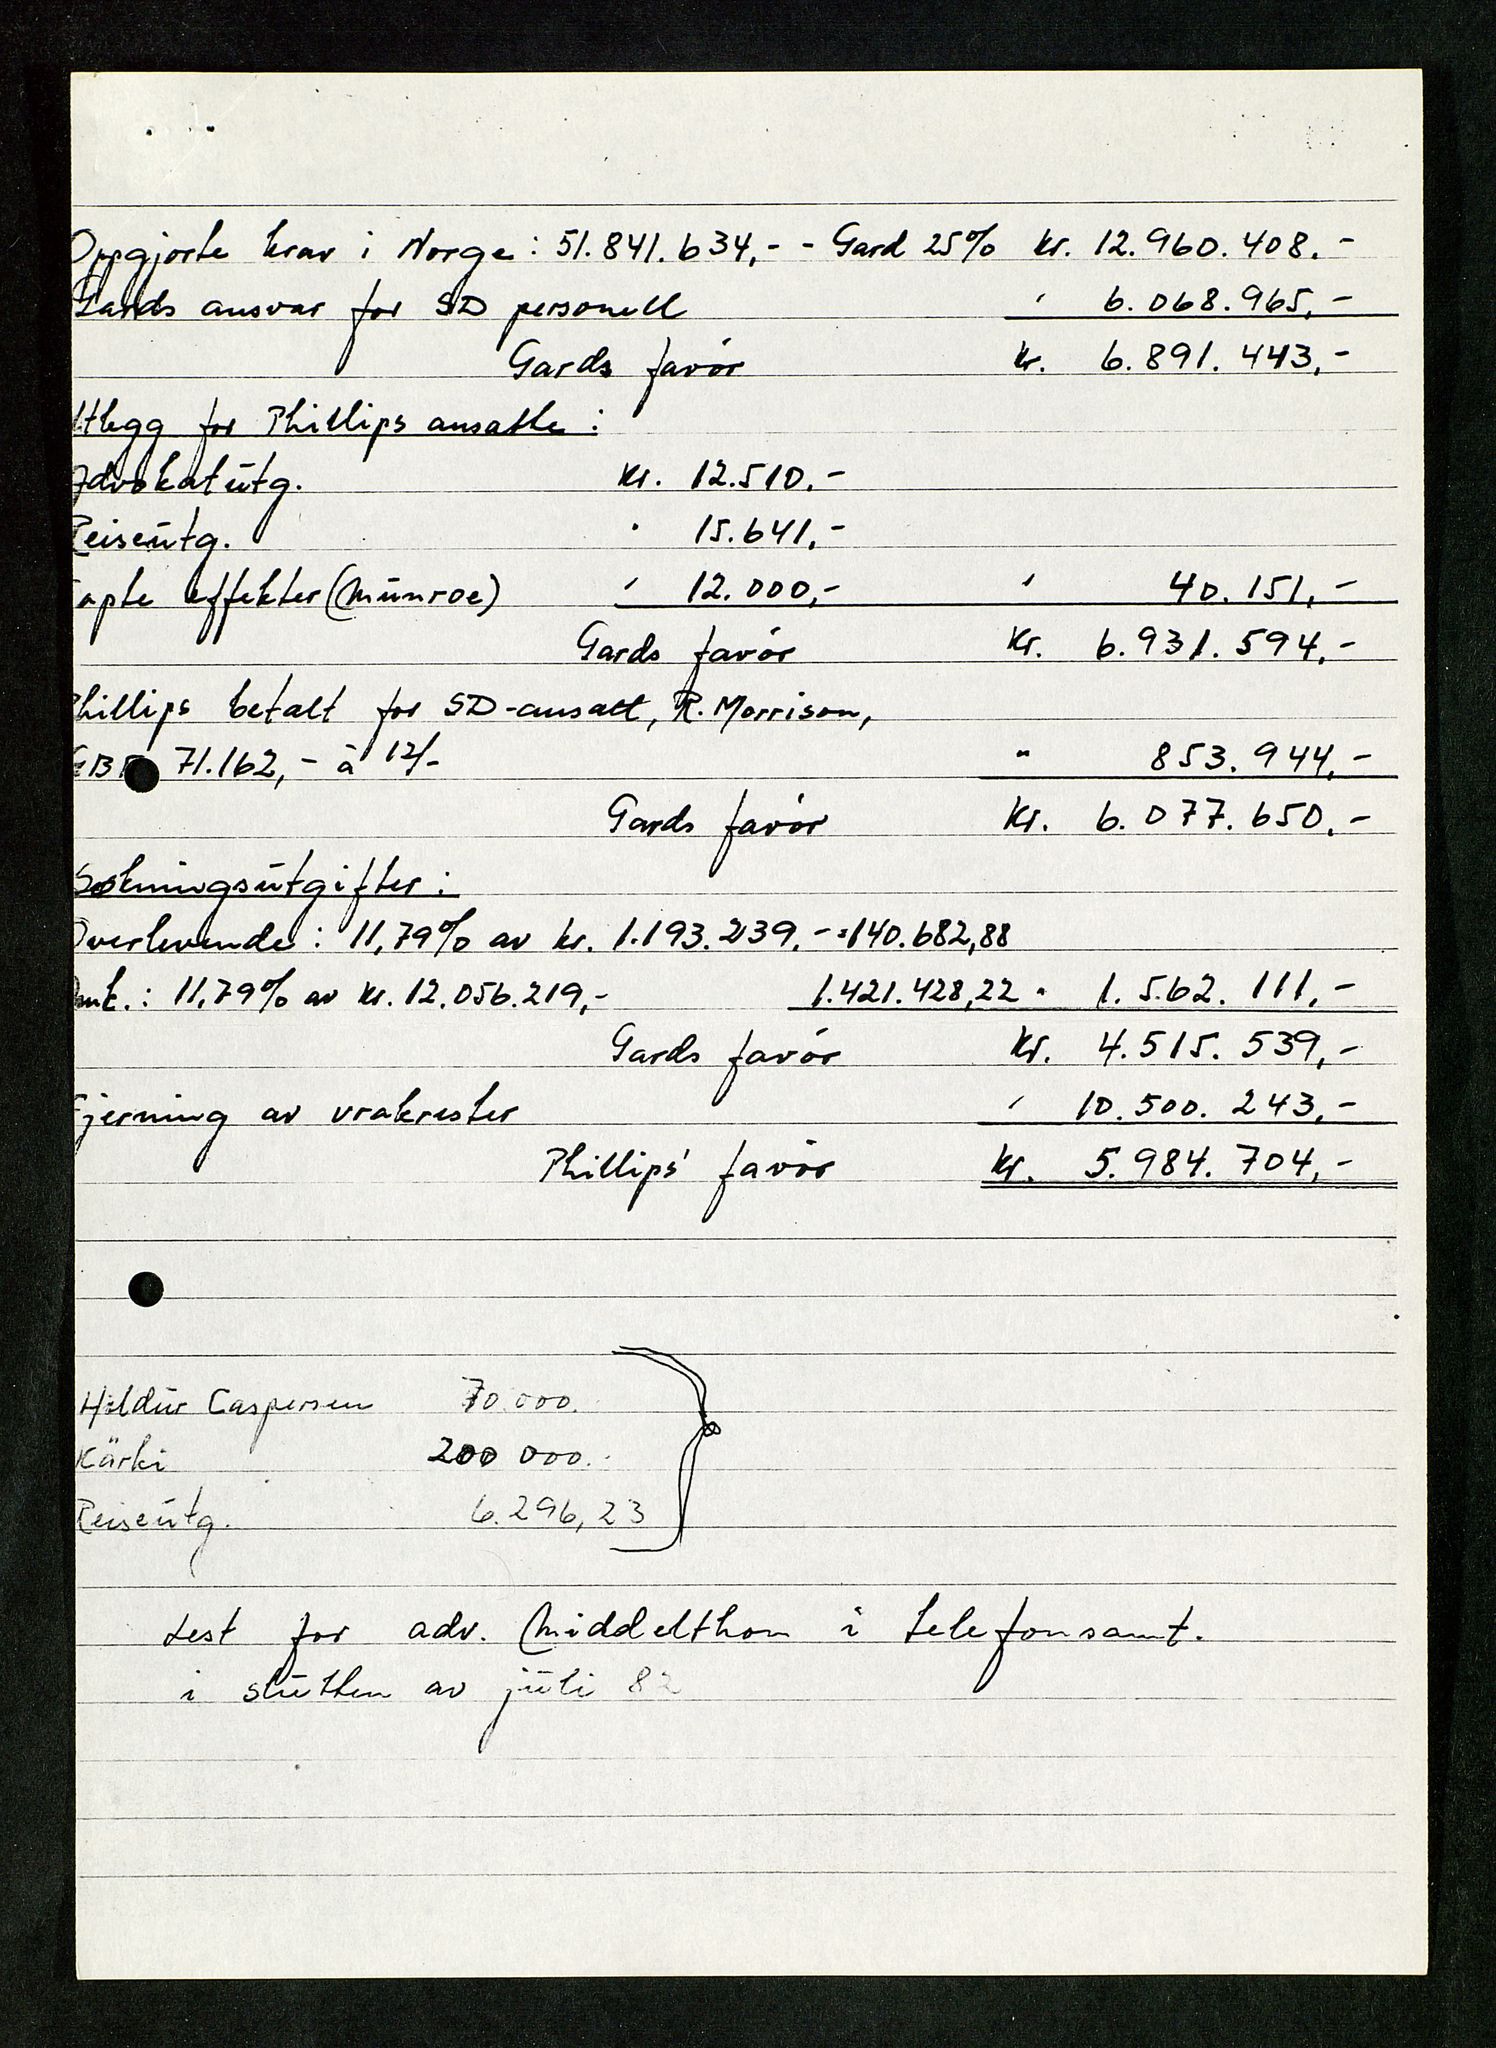 Oppgjorte krav i Norge: 51.841.634,- - Gard 25% kr. 12.960.408.-
Gards ansvar for SD personell " 6.068.965,-
Gards favör kr. 6.891.443,-
Utlegg for Phillips ansatte:
Advokatutg. kr. 12.510.-
Reiseutg. " 15.641,-
Tapte effekter (Munroe) " 12.000,- " 40.151,-
Gards favör kr. 6.931.594,-
Phillips betalt for SD-ansatt, R. Morrison,
GBP 71.162,- à 12/- " 853.944,-
Gards favör kr. 6.077.650,-
Søkningsutgifter:
Overlevende: 11,79% av kr. 1.193.239.-=140.682,88
Omk.: 11,79% av kr. 12.056.219,- 1.421.428,22 " 1.562.111,-
Gards favör kr. 4.515.539,-
Fjerning av vrakrester " 10.500.243,-
Phillips' favör kr. 5.984.704,-
Hildur Caspersen 70.000.
Kärki 200 000.
Reiseutg. 6.296,23
Lest for adv. Middelthon i telefonsamt.
i slutten av juli 82